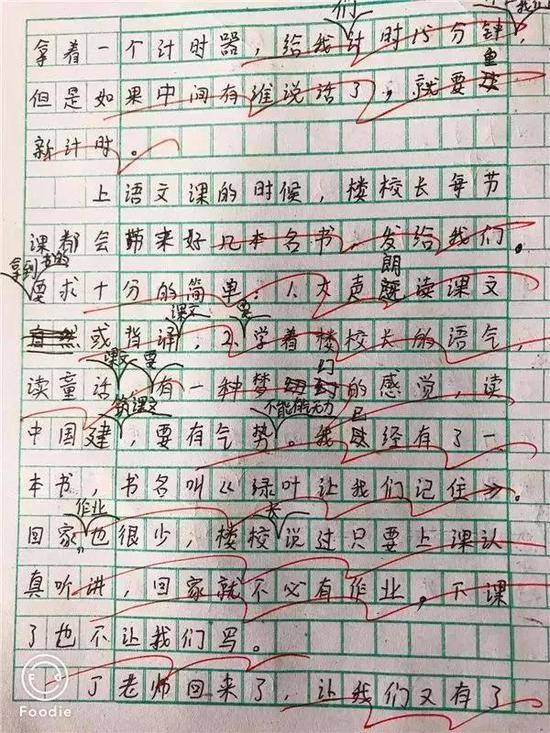 们
拿着一个计时器，给我计时15分钟，
但是如果中间有谁说话了，就要重
新计时。
上语文课的时候，楼校长每节
课都会带来好几本名书，发给我们。
拿到书的
要求十分的简单：1.大声朗读课文
课文 要
或背诵，2.学着楼校长的语气，
课文 要 幻
读童话，有一种梦的感觉，读
筑课文 不能有气无力
中国建，要有气势。我已经有了一
本书，书名叫《绿叶让我们记住》。
作业 长
回家也很少，楼校说过只要上课认
真听讲，回家就不必有作业，下课
了也不让我们写。
丁老师回来了，让我们又有了
Foodie